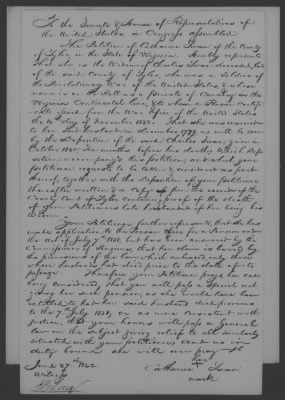 To the Senate & House of Representatives of
the United States in Congress assembled
The Petition of Catharine Swan of the County
of Tyler, in the State of Virginia. Humbly represents
that she is the Widow of Charles Swan deceased, late
of the said County of Tyler, who was a soldier of
the Revolutionary War of the United States, & whose
name is on the Rolls as a private of Cavalry in the
Virginia Continental line, & to whom a Pension certifi-
cate issued from the War Office of the United States
the 4th day of December 1832. That she was married
to her said husband in December 1799, as will be seen
by the Deposition of the said Charles Swan, given in
October 1832, months before his death, which Depo-
sition accompany's this petition, and which your
petitioner requests to be taken & considered as part
thereof, together with the deposition of your petitioner
hereafter written & a copy from the record of the
County Court of Tyler containing proof of the death
of your Petitioners late husband & of her being his
widow.
Your Petitioner further represents, that she has
made application to the Pension Office for a Pension under
the act of July 7th 1838, but has been answered by the
Commissioner of Pensions, that her claim is barred by
the provisions of the law which includes only those
whose husbands had died prior to the date of its
passage. Therefore your Petitioner prays the case
being considered that you will pass a Special act
giving her such pension, as she would have been
entitled to, had her said husband died previous
to the 7th July 1838, or as more consistent with
justice, that your honours will pass a General
law on the subject giving relief to all similarly
situated with your petitioner, and as in
duty bound she will ever pray &c
June 27th 1842
Witness
her
Catharine Swan
mark